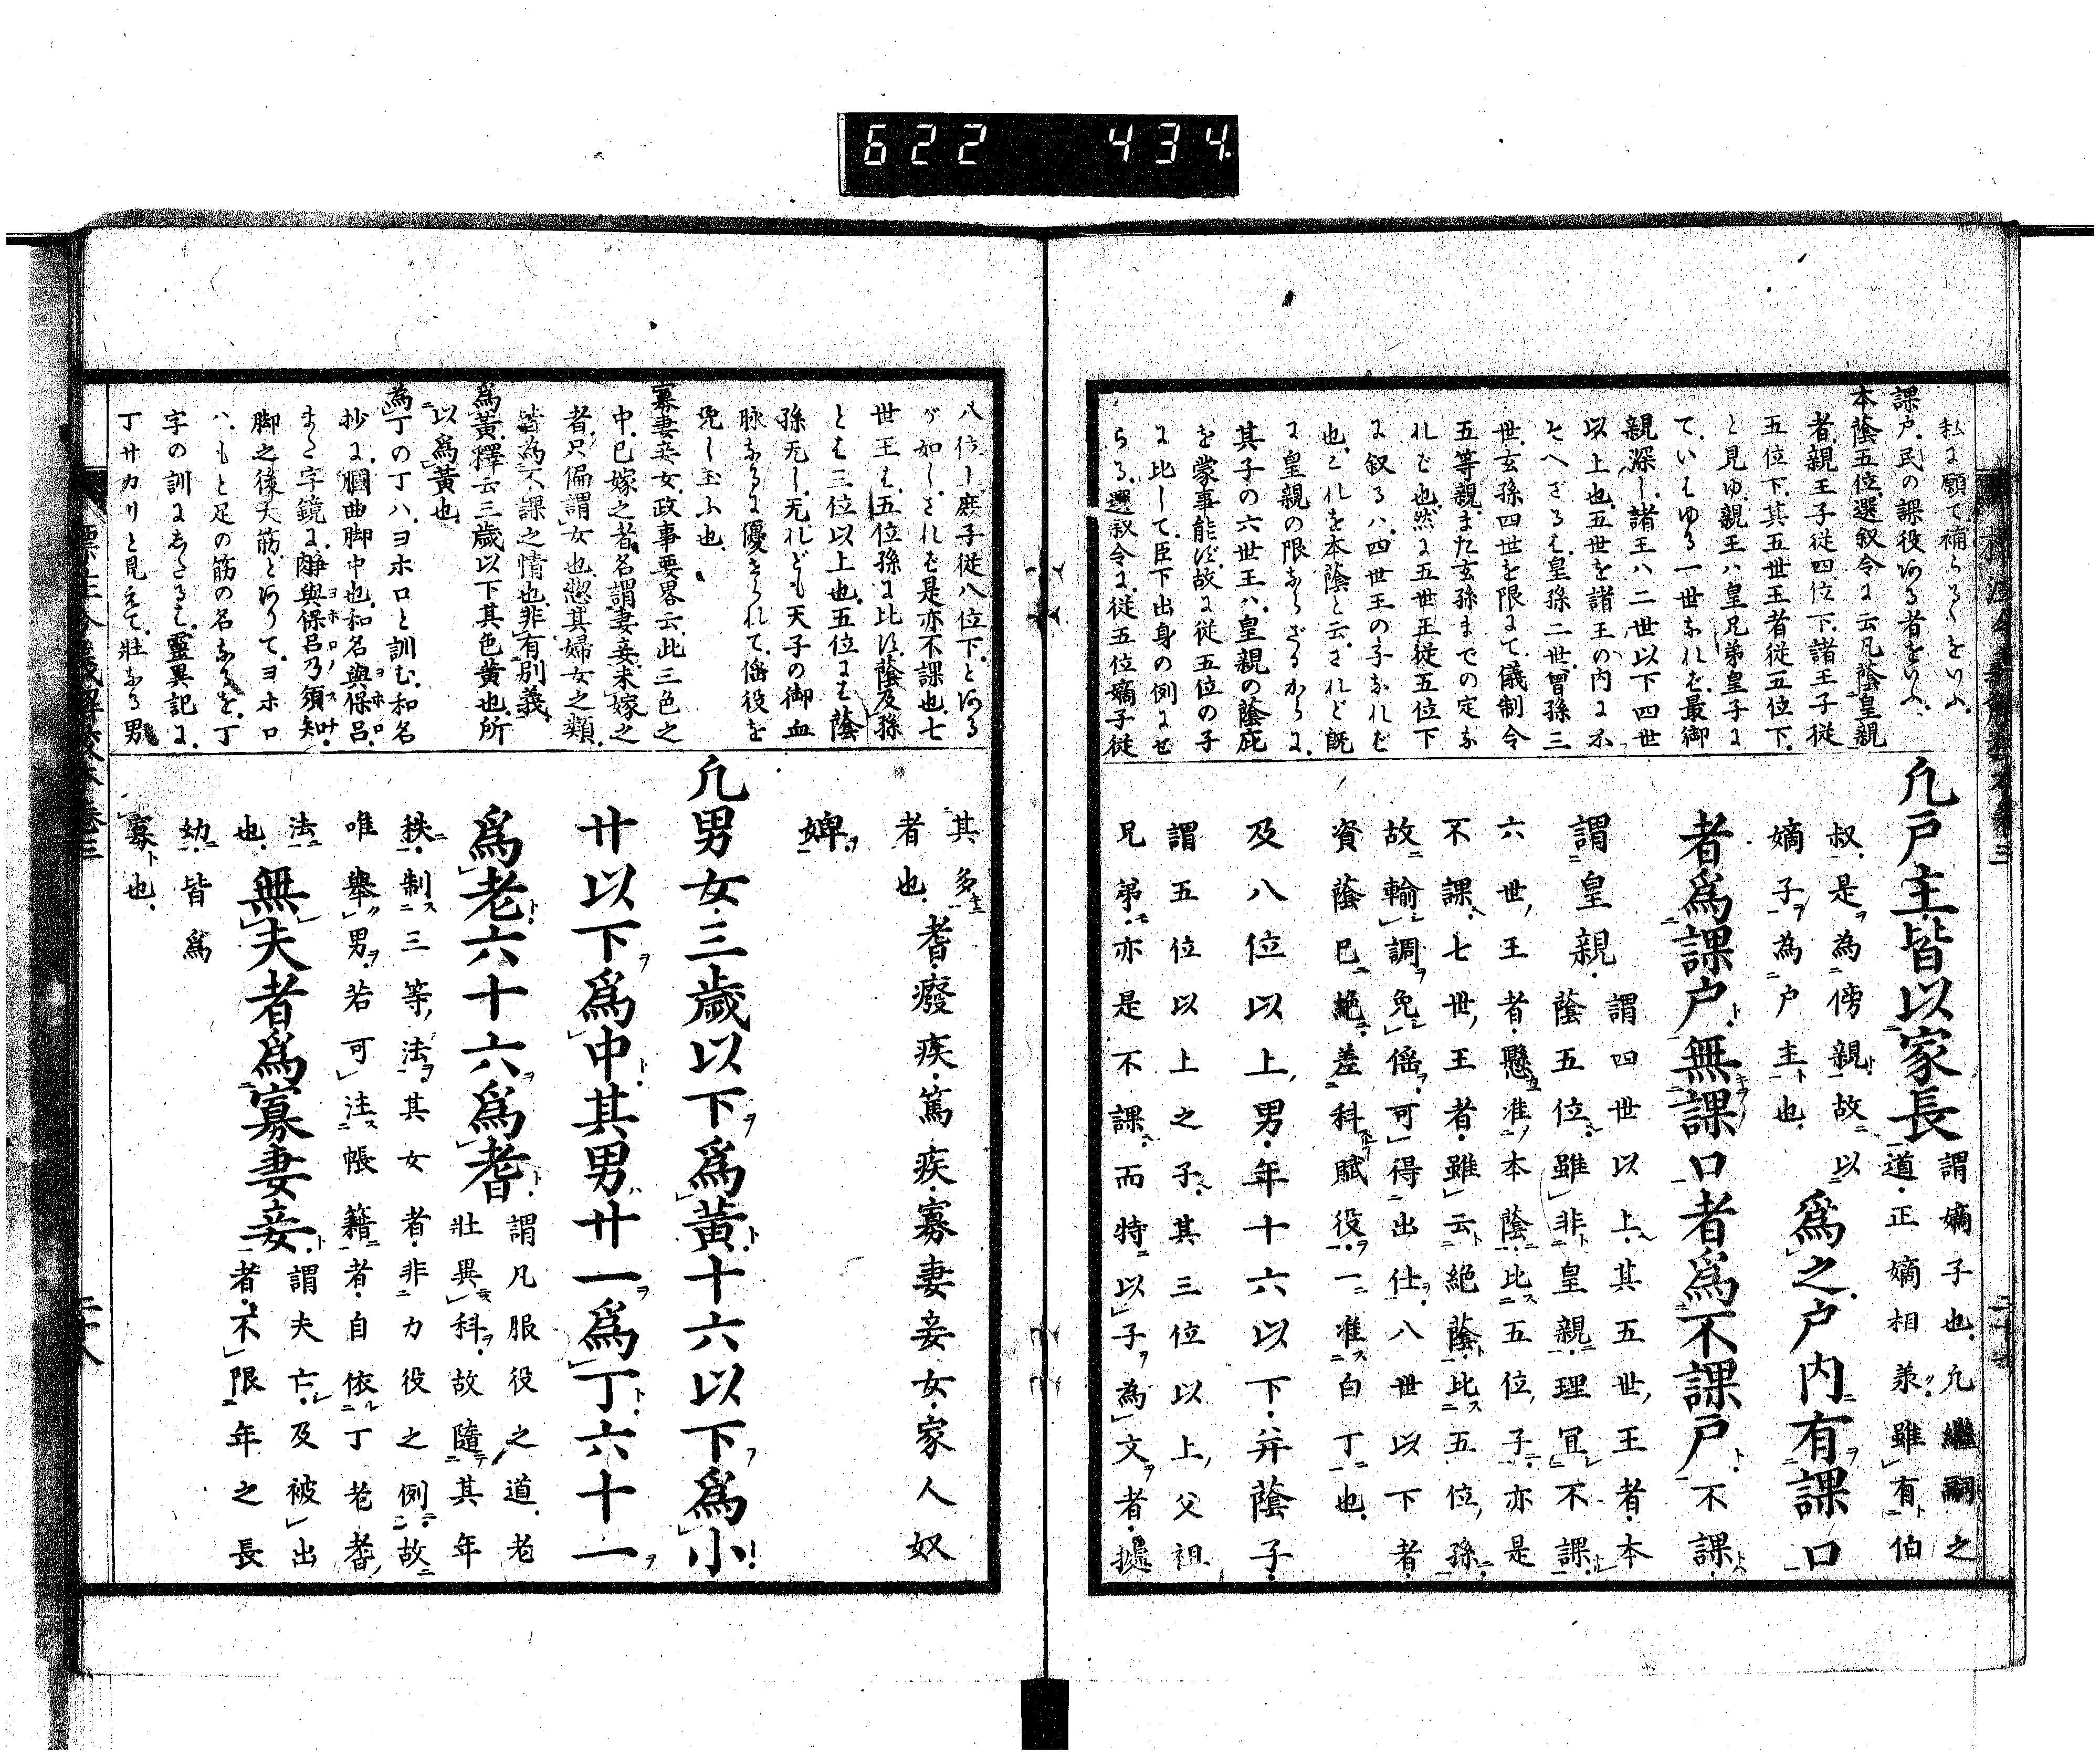 622 434
私に願て補らるゝをいふ
課戸.民の課役ある者をいふ
本蔭五位.選叙令に云凡蔭皇親
者.親王子従四位下.諸王子従
五位下.其五世王者従五位下.
と見ゆ.親王ハ皇兄弟皇子に
て.いはゆる一世なれバ.最御
親深し.諸王ハ二世以下四世
以上也.五世を諸王の内に不
そへざるは.皇孫二世.曽孫三
世.玄孫四世を限にて.儀制令
五等親.また玄孫までの定な
れバ也.然に五世王従五位下
に叙るハ.四世王の子なれバ
也.これを本蔭と云.されど既
に皇親の限ならざるからに.
其子の六世王ハ.皇親の蔭庇
を蒙事能ず.故に従五位の子
に比して.臣下出身の例にせ
らる.選叙令に.従五位嫡子従
凡戸主.皆以家長
謂嫡子也.凡繼嗣之
道.正嫡相承.雖有伯
叔.是為傍親.故以
嫡子為戸主也.
爲之.戸内有課口
者爲課戸.無課口者爲不課戸.
不課.
謂皇親.
謂四世以上.其五世王者.本
蔭五位.雖非皇親.理宜不課.
六世王者.懸准本蔭.比五位子.亦是
不課.七世王者.雖云絶蔭.比五位孫.
故輸調免徭.可得出仕.八世以下者.
資蔭已絶.差科賦役.一准白丁也.
及八位以上.男.年十六以下.并蔭子.
謂五位以上之子.其三位以上.父祖
兄弟.亦是不課.而特以子為文者.擧
八位上.庶子従八位下.とある
が如し.されバ是亦不課也.七
世王は.五位孫に比ず.蔭及孫
とは三位以上也.五位には蔭
孫无し.无れども天子の御血
脉なるに優せられて.徭役を
免し玉ふ也.
寡妻妾女.政事要畧云.此三色之
中.已嫁之者.名謂妻妾.未嫁之
者.只偏謂女也.惣其婦女之類.
皆為不課之情也.非有別義.
爲黄.釋云三歳以下其色黄也.所
以爲黄也
為丁の丁ハ.ヨホロと訓む.和名
抄に.膕曲脚中也.和名與保呂.
また字鏡に.𨄔與保呂乃須知.
脚之後大筋.とありて.ヨホロ
ハ.もと足の筋の名なるを.丁
字の訓にあたるは.靈異記に.
丁サカリと見えて.壮なる男
其多
者也.
耆.癈疾.篤疾.寡妻妾女.家人奴
婢.
凡男女.三歳以下爲黄.十六以下爲小.
廿以下爲中.其男廿一爲丁.六十一
爲老.六十六爲耆.
謂凡服役之道.老
壮異科.故隨其年
秩.制三等法.其女者.非力役之例.故
唯擧男.若可注帳籍者.自依丁老耆
法也.
無夫者爲寡妻妾.
謂夫亡.及被出
者.不限年之長
幼.皆爲
寡也.